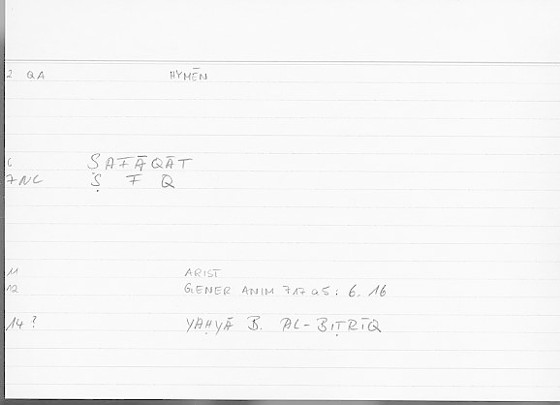 2 QA HYMĒN
6 ṢAFĀQĀT
7 NC Ṣ F Q
11 ARIST
12 GENER ANIM 717 a5 : 6. 16
14 ? YAḤYĀ B. AL-BIṬRĪQ